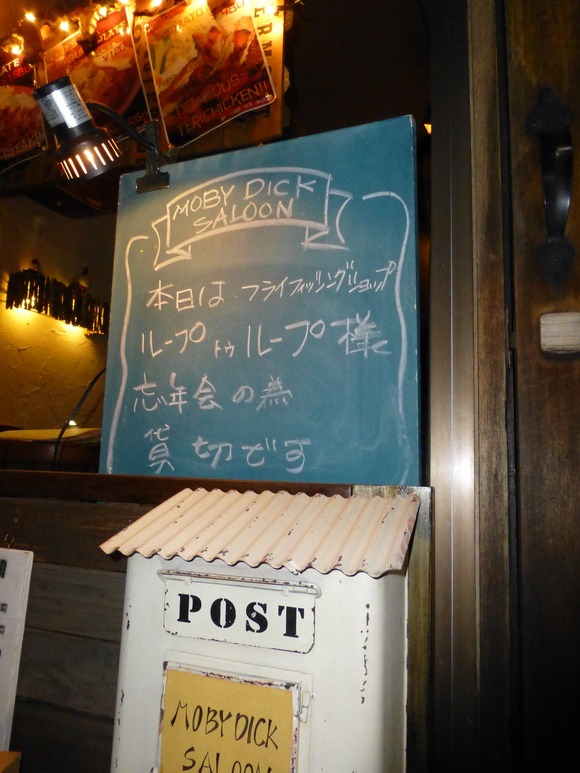 DELICIOUS
TERICHICKEN!!
MOBY DICK
SALOON
本日は、フライフィッシングショップ
ループ トゥ ループ 様
忘年会の為
貸切です
POST
MOBY DICK
SALOON